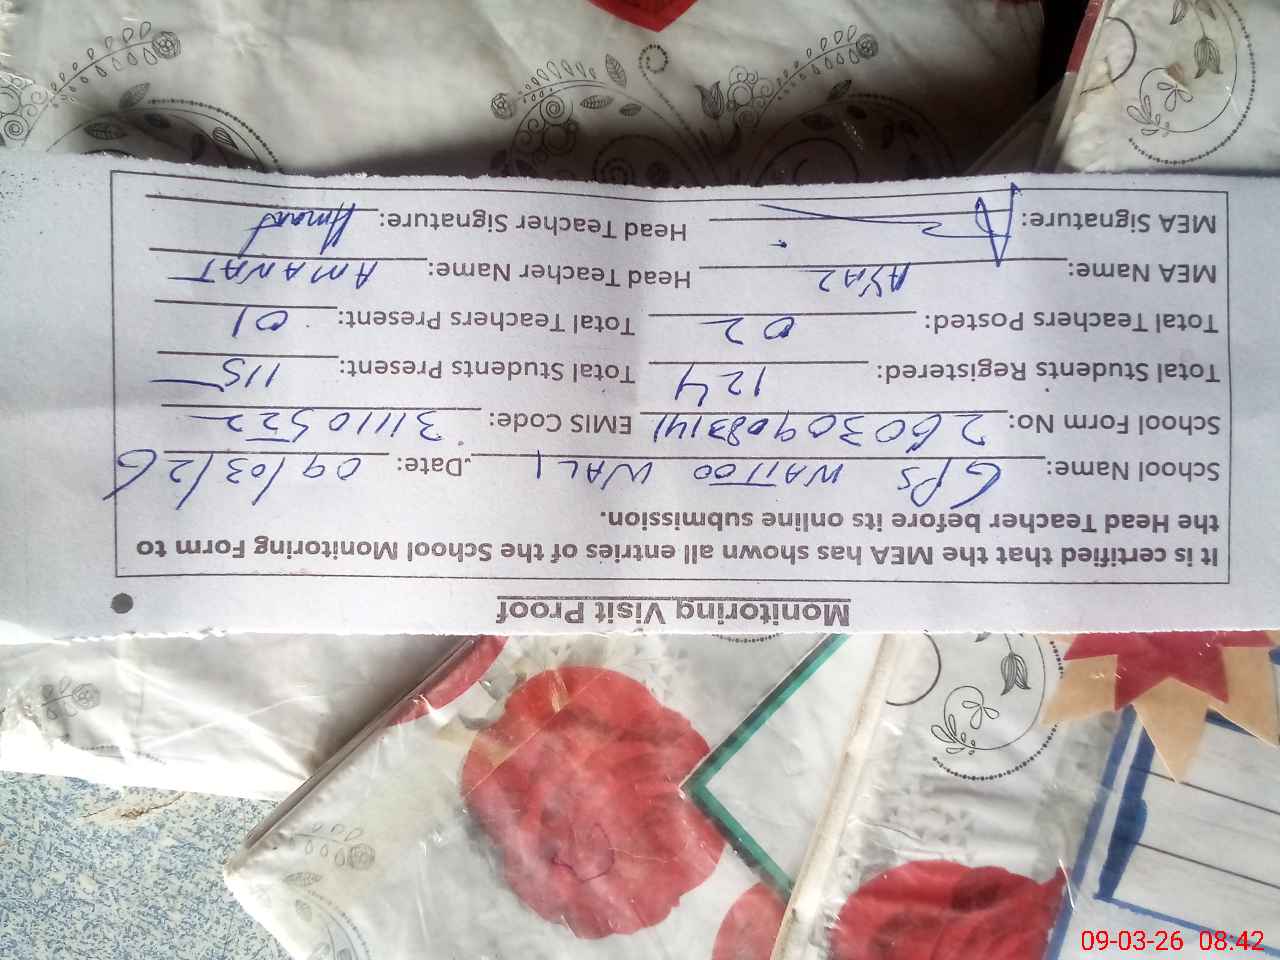 Monitoring Visit Proof
It is certified that the MEA has shown all entries of the School Monitoring Form to
the Head Teacher before its online submission.
School Name: GPS WATTOO WALI Date: 09/03/26
School Form No: 260309083141 EMIS Code: 31110522
Total Students Registered: 124 Total Students Present: 115
Total Teachers Posted: 02 Total Teachers Present: 01
MEA Name: AYAZ Head Teacher Name: AMANAT
MEA Signature: Head Teacher Signature: Amanat
09-03-26 08:42